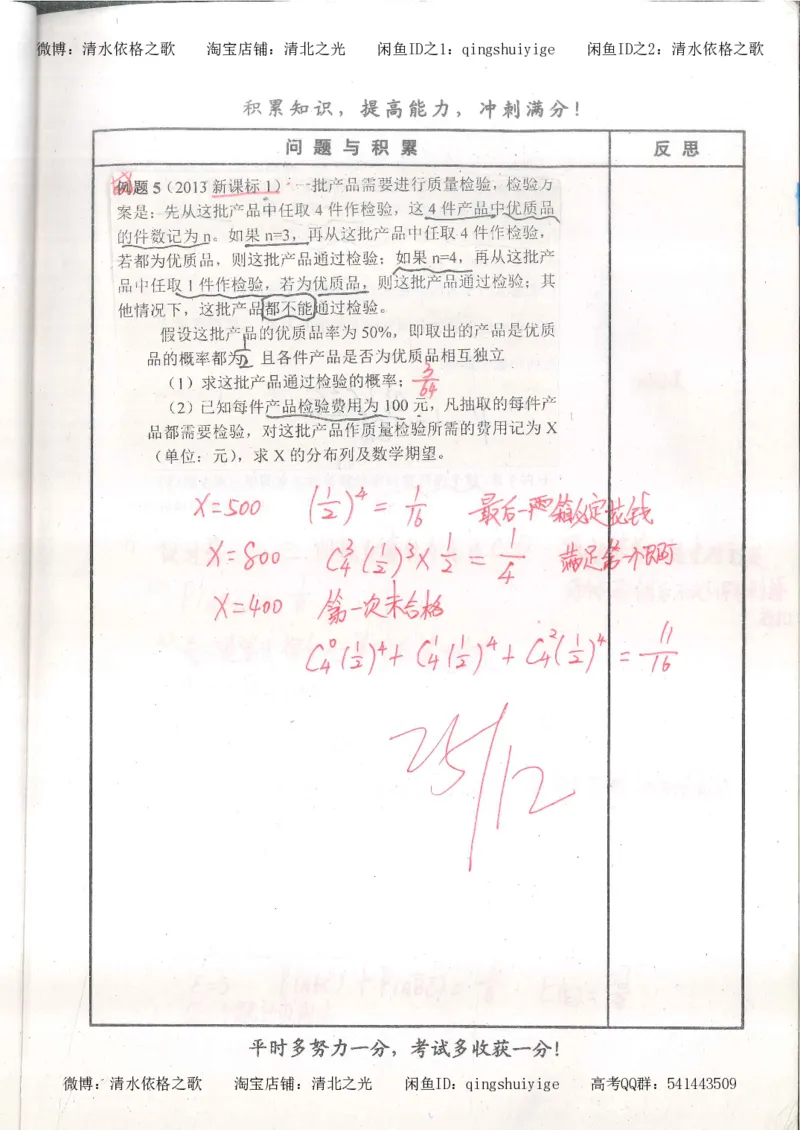 微博：清水依格之歌 淘宝店铺：清北之光 闲鱼ID之1：qingshuiyige 闲鱼ID之2：清水依格之歌
积累知识，提高能力，冲刺满分！
问题与积累 反思
例题 5（2013 新课标 1）一批产品需要进行质量检验，检验方
案是：先从这批产品中任取 4 件作检验，这 4 件产品中优质品
的件数记为 n。如果 n=3，再从这批产品中任取 4 件作检验，
若都为优质品，则这批产品通过检验；如果 n=4，再从这批产
品中任取 1 件作检验，若为优质品，则这批产品通过检验；其
他情况下，这批产品都不能通过检验。
假设这批产品的优质品率为 50%，即取出的产品是优质
品的概率都为1/2 且各件产品是否为优质品相互独立
（1）求这批产品通过检验的概率；3/64
（2）已知每件产品检验费用为 100 元，凡抽取的每件产
品都需要检验，对这批产品作质量检验所需的费用记为 X
（单位：元），求 X 的分布列及数学期望。
X=500 (1/2)^4 = 1/16 最后一定花钱
X=800 C_4^3(1/2)^3×1/2 = 1/4 满足第一个
X=400 第一次未合格
C_4^0(1/2)^4+C_4^1(1/2)^4+C_4^2(1/2)^4=11/16
25/12
平时多努力一分，考试多收获一分！
微博：清水依格之歌 淘宝店铺：清北之光 闲鱼ID：qingshuiyige 高考QQ群：541443509